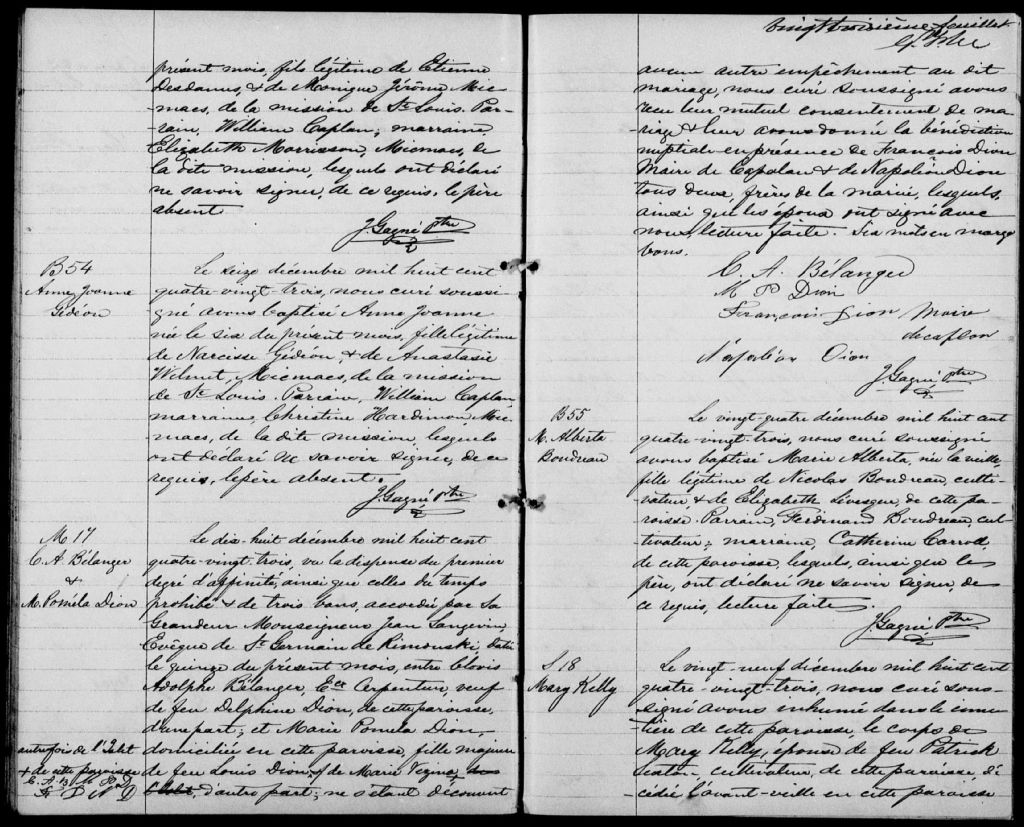 présent mois, fils légitime de Etienne
Desdames, & de Monique Jérôme Mic-
macs, de la mission de St. Louis. Par-
-rain, William Caplan; marraine,
Elizabeth Morrisson, Micmacs, de
la dite mission, lesquels ont déclaré
ne savoir signer, de ce requis, le père
absent.
J. Gagné Ptre
B 54
Anne Joanne
Gédeon
Le seize décembre mil huit cent
quatre-vingt-trois, nous curé soussi-
gné avons baptisé Anne Joanne
née le six du présent mois, fille légitime
de Narcisse Gédéon & de Anastasie
Wilmet, Micmacs, de la mission
de St. Louis. Parrain, William Caplan
marraine, Christine Hardimon, Mic-
macs, de la dite mission, lesquels
ont déclaré ne savoir signer, de ce
requis, le père absent.
J. Gagné Ptre
M 17
C. A. Bélanger
&
M. Poméla Dion
Le dix-huit décembre mil huit cent
quatre-vingt-trois, vu la dispense du premier
degré d'affinité, ainsi que celles du temps
prohibé & de trois bans, accordée par Sa
Grandeur Monseigneur Jean Langevin,
Evêque de St. Germain de Rimouski, datée
le quinze du présent mois, entre Clovis
Adolphe Bélanger, Ecr Arpenteur, veuf
de feu Delphine Dion, de cette paroisse,
d'une part; et Marie Pomela Dion,
domiciliée en cette paroisse, fille majeure
de feu Louis Dion & de Marie Vezina,
d'autre part; ne s'étant découvert
autrefois de l'Islet
& de cette paroisse
C. A. B. M. P. D
F. D N. D
vingt troisième feuillet
aucun autre empêchement au dit
mariage, nous curé soussigné avons
reçu leur mutuel consentement de ma-
riage & leur avons donné la bénédiction
nuptiale en présence de François Dion
Maire de Capelan & de Napoléon Dion
tous deux, frères de la mariée, lesquels,
ainsi que les époux ont signé avec
nous, lecture faite. Six mots en marge
bons.
C. A. Bélanger
M P Dion
François Dion Maire
de caplan
Napoléon Dion
J. Gagné Ptre
B 55
M. Alberta
Boudreau
Le vingt-quatre décembre mil huit cent
quatre-vingt-trois, nous curé soussigné
avons baptisé Marie Alberta, née la veille,
fille légitime de Nicolas Boudreau, culti-
vateur, & de Elizabeth Lévesque, de cette pa-
roisse. Parrain, Ferdinand Boudreau, cul-
tivateur; marraine, Catherine Carrod,
de cette paroisse, lesquels, ainsi que le
père, ont déclaré ne savoir signer, de
ce requis, lecture faite.
J. Gagné Ptre
S 18
Mary Kelly
Le vingt-neuf décembre mil huit cent
quatre-vingt-trois, nous curé sous-
-signé avons inhumé dans le cime-
tière de cette paroisse, le corps de
Mary Kelly, épouse de feu Patrick
cultivateur, de cette paroisse, dé-
cédée l'avant-veille en cette paroisse